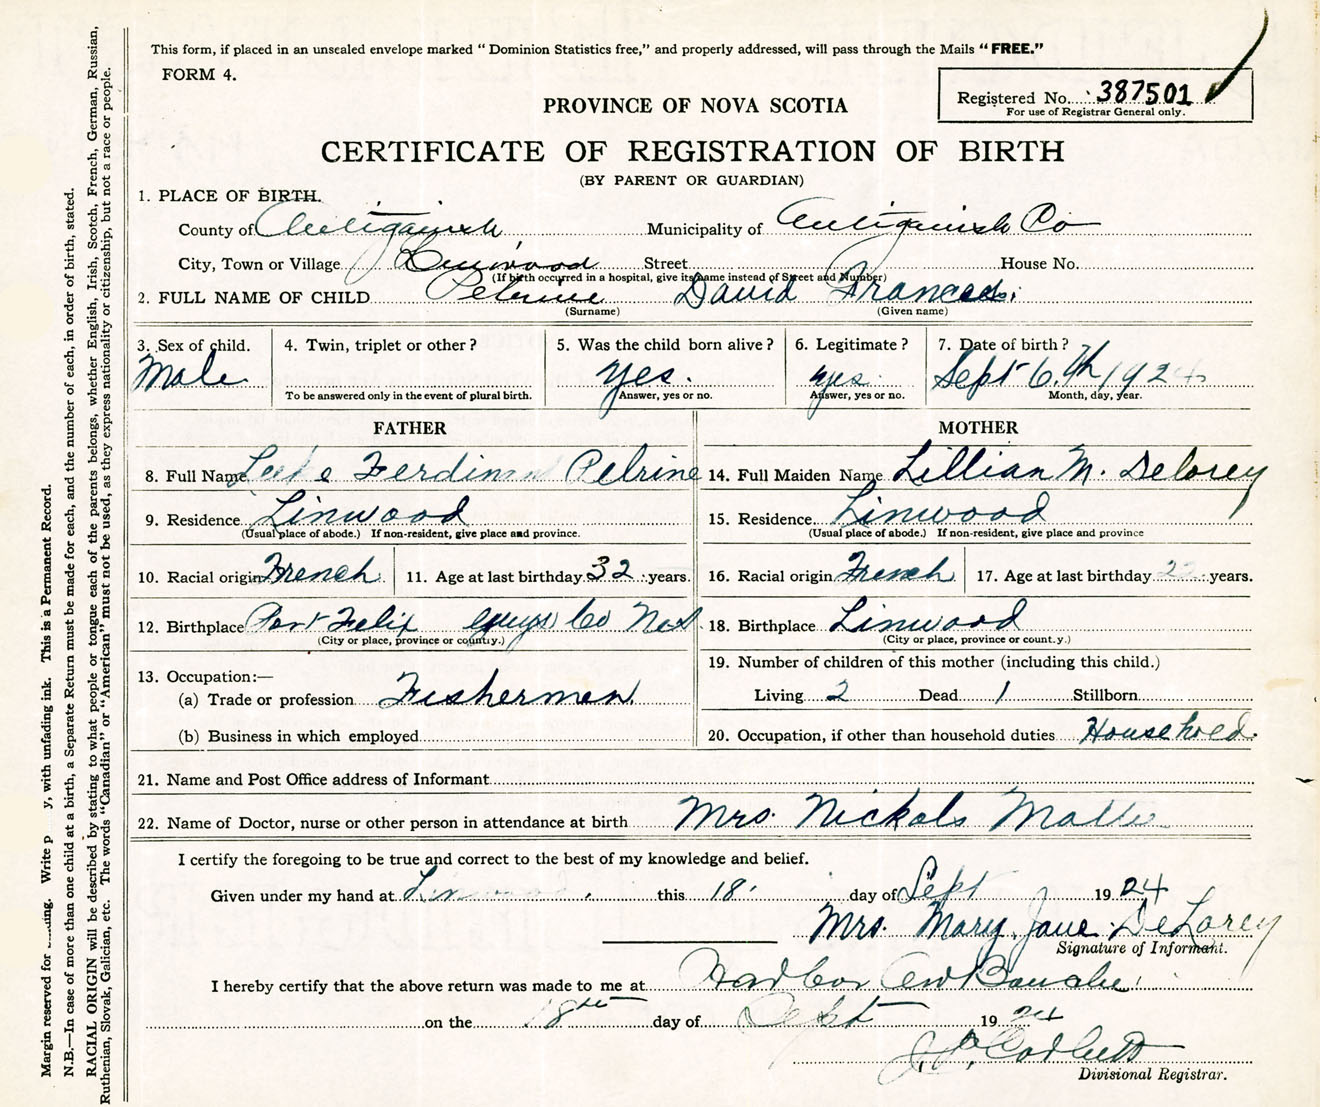 This form, if placed in an unsealed envelope marked “Dominion Statistics free,” and properly addressed, will pass through the Mails “FREE.”
FORM 4.
Registered No. 387501
For use of Registrar General only.
PROVINCE OF NOVA SCOTIA
CERTIFICATE OF REGISTRATION OF BIRTH
(BY PARENT OR GUARDIAN)
1. PLACE OF BIRTH.
County of Antigonish Municipality of Antigonish Co
City, Town or Village Linwood Street House No.
(If birth occurred in a hospital, give its name instead of Street and Number)
2. FULL NAME OF CHILD Pelrine David Frances
(Surname) (Given name)
3. Sex of child. Male
4. Twin, triplet or other?
To be answered only in the event of plural birth.
5. Was the child born alive? yes.
Answer, yes or no.
6. Legitimate? yes.
Answer, yes or no.
7. Date of birth? Sept 6th 1924
Month, day, year.
FATHER
8. Full Name Ferdinan Pelrine
9. Residence Linwood
(Usual place of abode.) If non-resident, give place and province.
10. Racial origin French 11. Age at last birthday 32 years.
12. Birthplace Port Felix Guys Co
(City or place, province or country.)
13. Occupation:—
(a) Trade or profession Fishermen
(b) Business in which employed
MOTHER
14. Full Maiden Name Lillian M. Delorey
15. Residence Linwood
(Usual place of abode.) If non-resident, give place and province
16. Racial origin French 17. Age at last birthday years.
18. Birthplace Linwood
(City or place, province or count.y.)
19. Number of children of this mother (including this child.)
Living 2 Dead 1 Stillborn
20. Occupation, if other than household duties Household.
21. Name and Post Office address of Informant
22. Name of Doctor, nurse or other person in attendance at birth Mrs. Nickols
I certify the foregoing to be true and correct to the best of my knowledge and belief.
Given under my hand at Linwood this 18 day of Sept 1924
Mrs. Mary Jane DeLorey
Signature of Informant.
I hereby certify that the above return was made to me at Harbor Au Bouche
on the 18th day of Sept 1924
Corbett
Divisional Registrar.
Margin reserved for Write p y, with unfading ink. This is a Permanent Record.
N.B.—In case of more than one child at a birth, a Separate Return must be made for each, and the number of each, in order of birth, stated.
RACIAL ORIGIN will be described by stating to what people or tongue each of the parents belongs, whether English, Irish, Scotch, French, German, Russian,
Ruthenian, Slovak, Galician, etc. The words “Canadian” or “American” must not be used, as they express nationality or citizenship, but not a race or people.